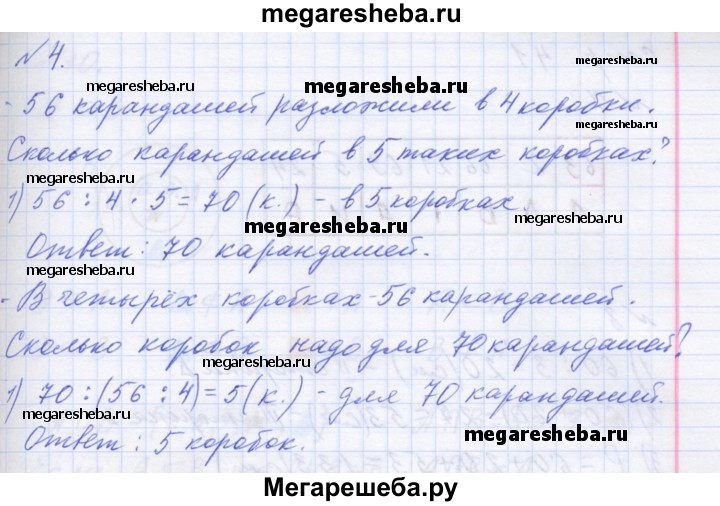 megaresheba.ru
№ 4.
megaresheba.ru
megaresheba.ru
- 56 карандашей разложили в 4 коробки.
megaresheba.ru
Сколько карандашей в 5 таких коробках?
megaresheba.ru
1) 56 : 4 · 5 = 70 (к.) - в 5 коробках.
megaresheba.ru
megaresheba.ru
Ответ : 70 карандашей.
megaresheba.ru
- В четырёх коробках - 56 карандашей.
megaresheba.ru
Сколько коробок надо для 70 карандашей?
megaresheba.ru
1) 70 : (56 : 4) = 5 (к.) - для 70 карандашей.
megaresheba.ru
Ответ : 5 коробок.
megaresheba.ru
Мегарешеба.ру